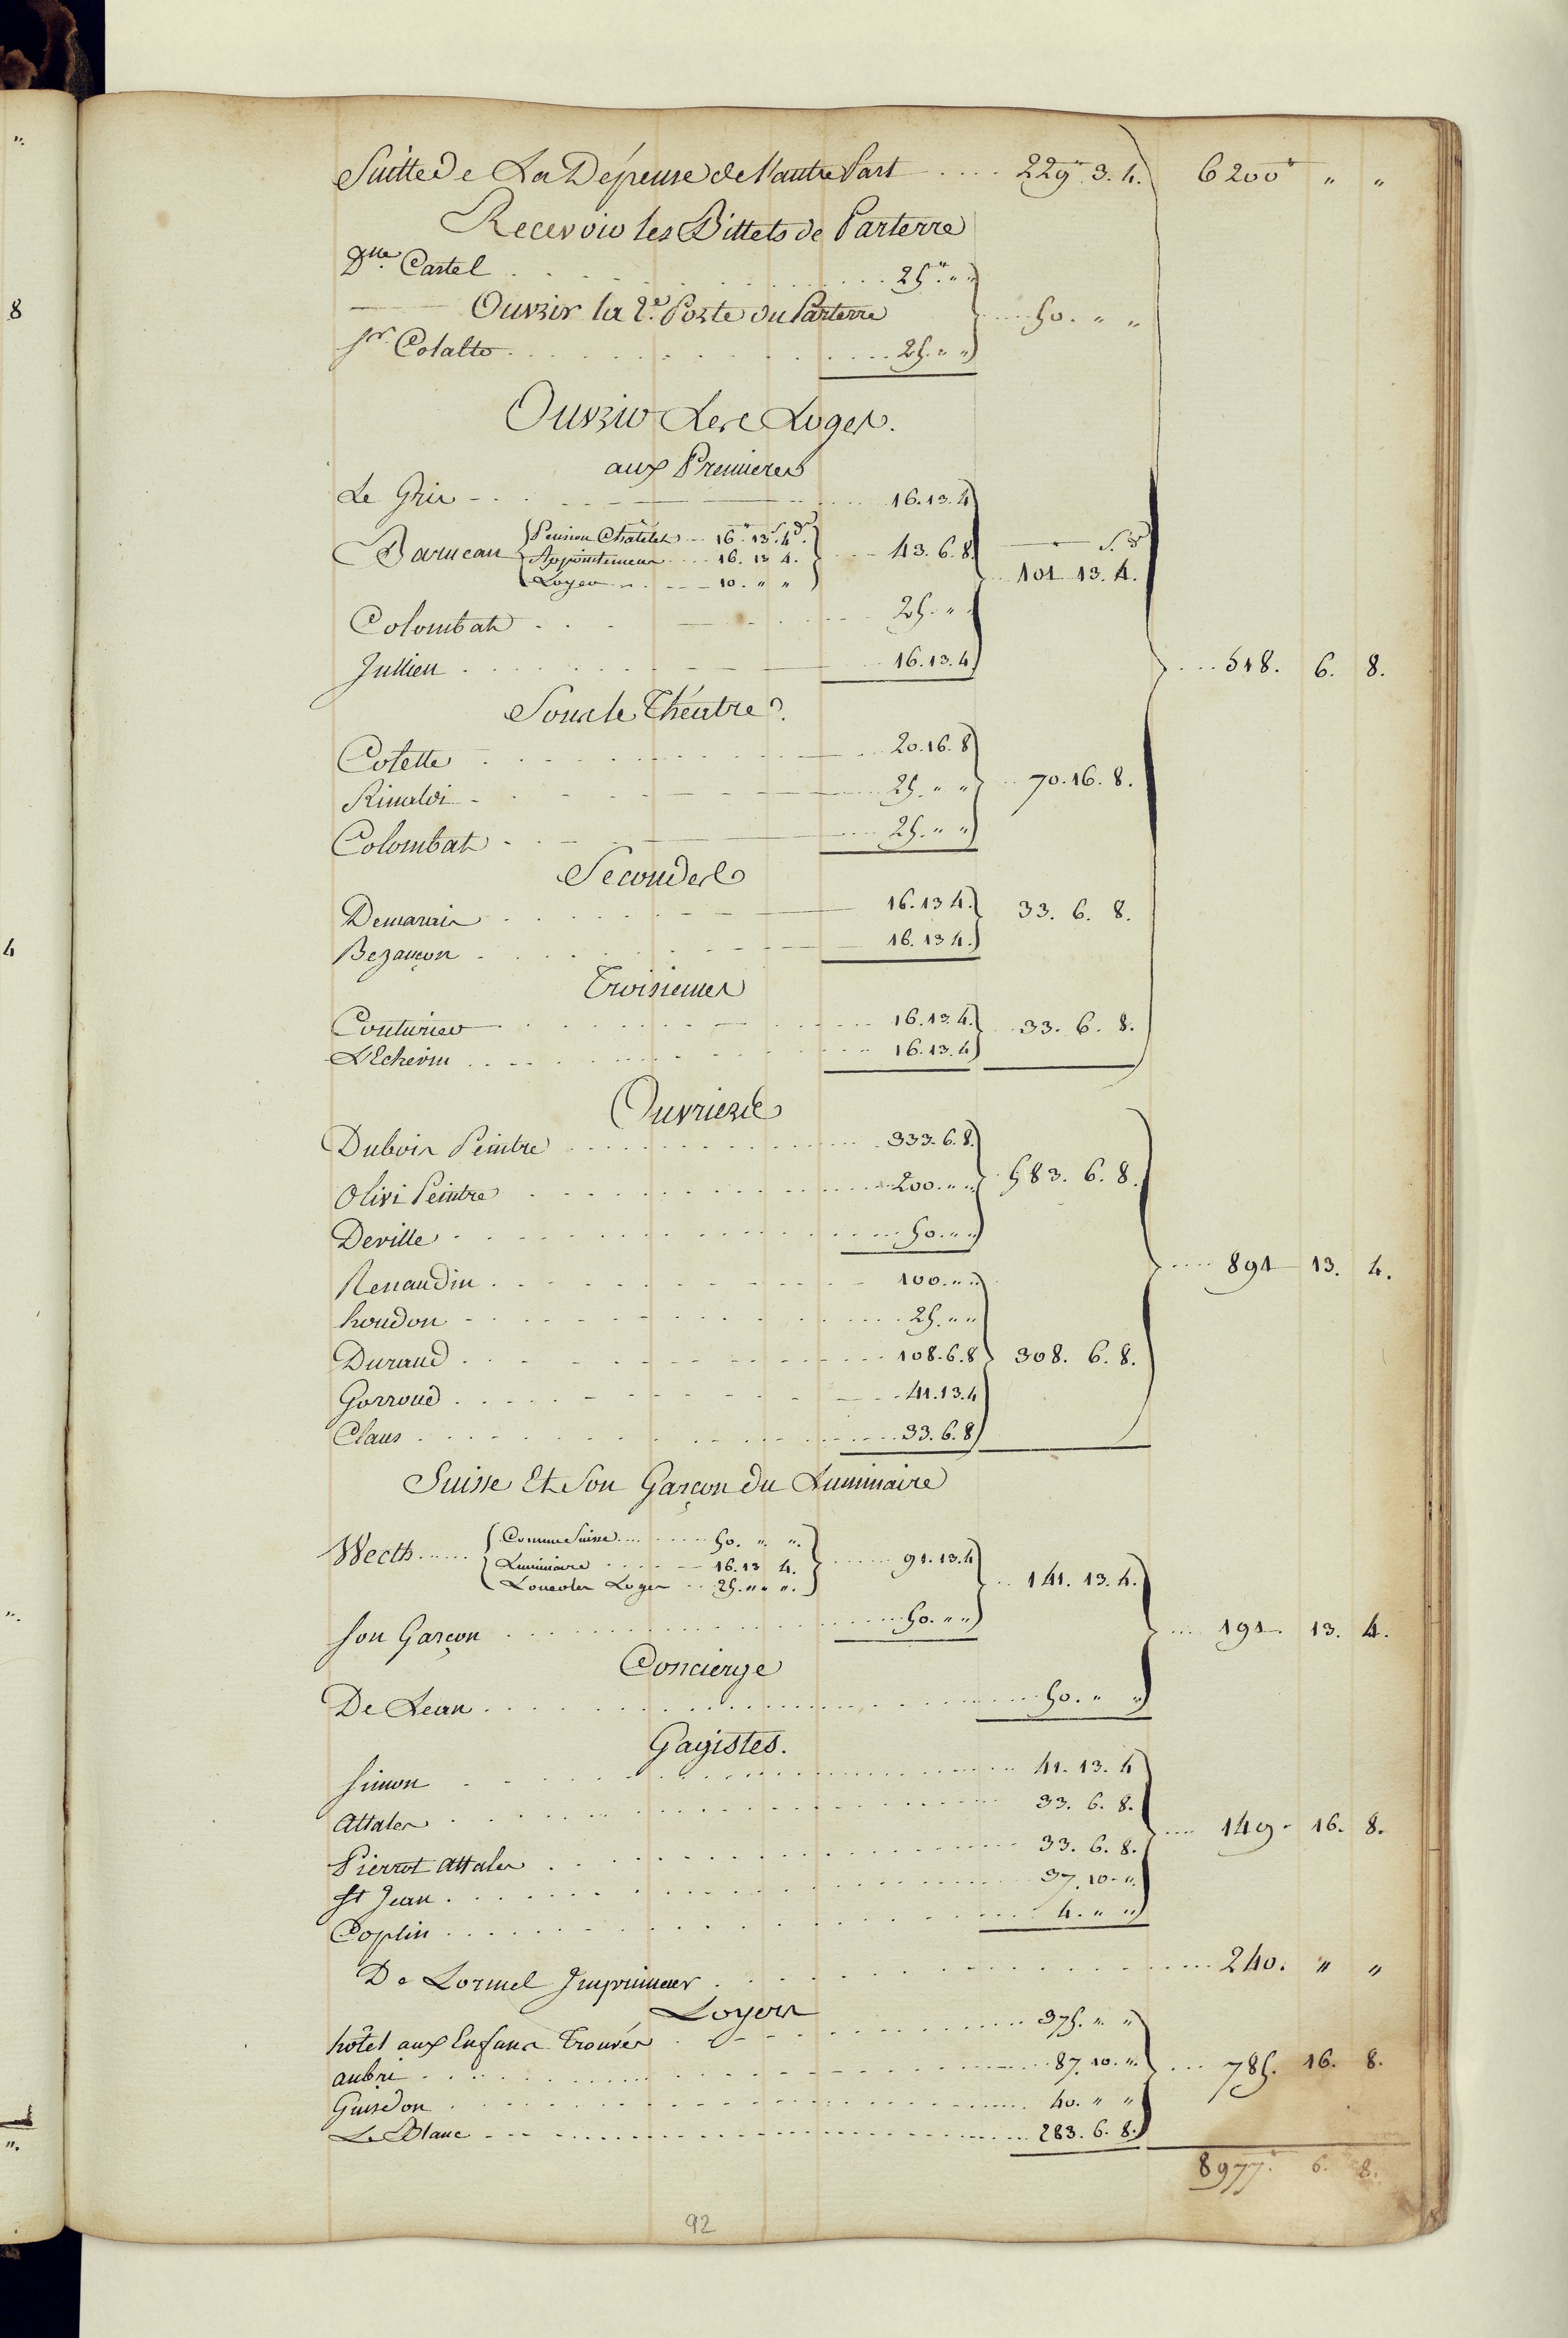 Suitte de La Dépense de l'autre Part .... 229ᴴ 3. 4. 6200ᴴ " "
Recevoir les Billets de Parterre
Dlle Castel ........ 25ᴴ " "
Ouvrir la 2e. Porte du Parterre .... 50. " "
Sr. Colalto ........ 25. " "
Ouvrir Les Loges.
aux Premieres
Le Gris ........ 16. 13. 4
Barucan Pension Châtelet ... 16ᴴ 13s 4d. 43. 6. 8. S. d
Appointemens .... 16. 13 4. 101 13. 4.
Loyer .... 10. " "
Colombat ........ 25. "
Jullien ........ 16. 13. 4 .... 518. 6. 8.
Sous le Théatre.
Colette ........ 20. 16. 8
Rinaldi ........ 25. " " 70. 16. 8.
Colombat ........ 25. " "
Secondes
Demarais ........ 16. 13 4. 33. 6. 8.
Bezançon ........ 16. 13 4.
Troisiemes
Couturier ........ 16. 13. 4. 33. 6. 8.
L'Echevin ........ 16. 13. 4
Ouvriers
Dubois Peintre ........ 333. 6. 8.
Olivi Peintre ........ 200. " " 583. 6. 8.
Deville ........ 50. " "
Renaudin ........ 100. " " .... 891 13. 4.
houdon ........ 25. " "
Durand ........ 108. 6. 8 308. 6. 8.
Gorroud ........ 41. 13. 4
Claus ........ 33. 6. 8
Suisse Et Son Garçon du Luminaire
Wecth ..... Comme Suisse .... 50. " ". .... 91. 13. 4
Luminaire .... 16. 13 4. 141. 13. 4.
Loueoler Loger .. 25. " " ".
Son Garçon ........ 50. " " .... 191. 13. 4.
Concierge
De Lean ........ 50. " "
Gagistes.
Simon ........ 41. 13. 4
Attales ........ 33. 6. 8. .... 149. 16. 8.
Pierrot Attales ........ 33. 6. 8.
St Jean ........ 37. 10. ".
Coplin ........ 4. " "
De Lormel Imprimeur ........ 240. " "
Loyers
hôtel aux Enfans Trouvés ........ 375. " "
aubri ........ 87. 10. ". .... 785. 16. 8.
Guisdon ........ 40. " "
Le Blanc ........ 283. 6. 8.
8977ᴴ 6. 8.
92